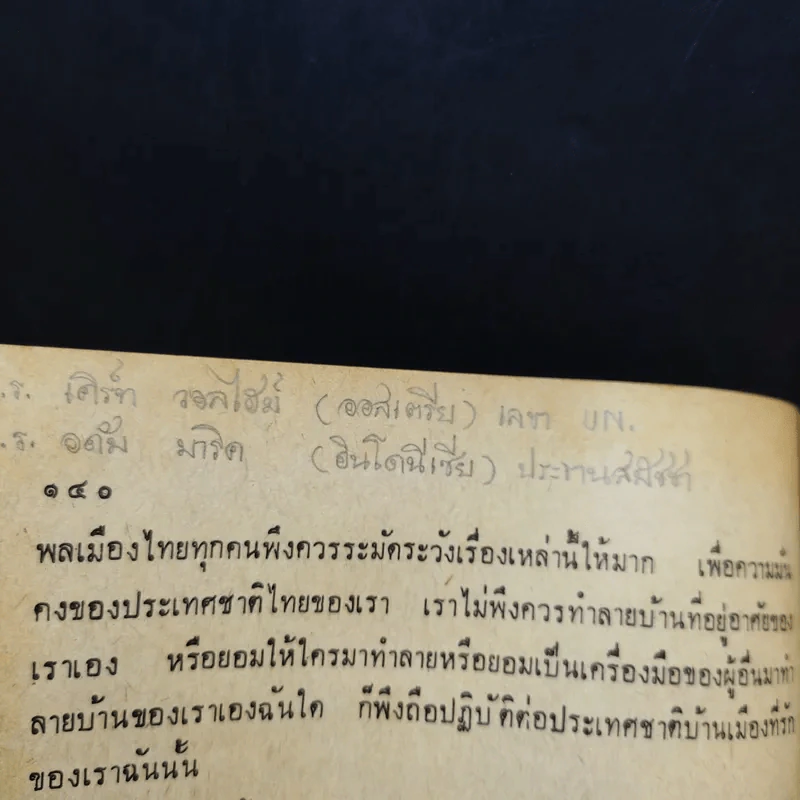 .ร. เคิร์ท วอลไฮม์ (ออสเตรีย) เลขา UN.
.ร. อดัม มาริค (อินโดนีเซีย) ประธานสมัชชา
๑๔๐
พลเมืองไทยทุกคนพึงควรระมัดระวังเรื่องเหล่านี้ให้มาก เพื่อความมั่น
คงของประเทศชาติไทยของเรา เราไม่พึงควรทำลายบ้านที่อยู่อาศัยของ
เราเอง หรือยอมให้ใครมาทำลายหรือยอมเป็นเครื่องมือของผู้อื่นมาทำ
ลายบ้านของเราเองฉันใด ก็พึงถือปฏิบัติต่อประเทศชาติบ้านเมืองที่รัก
ของเราฉันนั้น